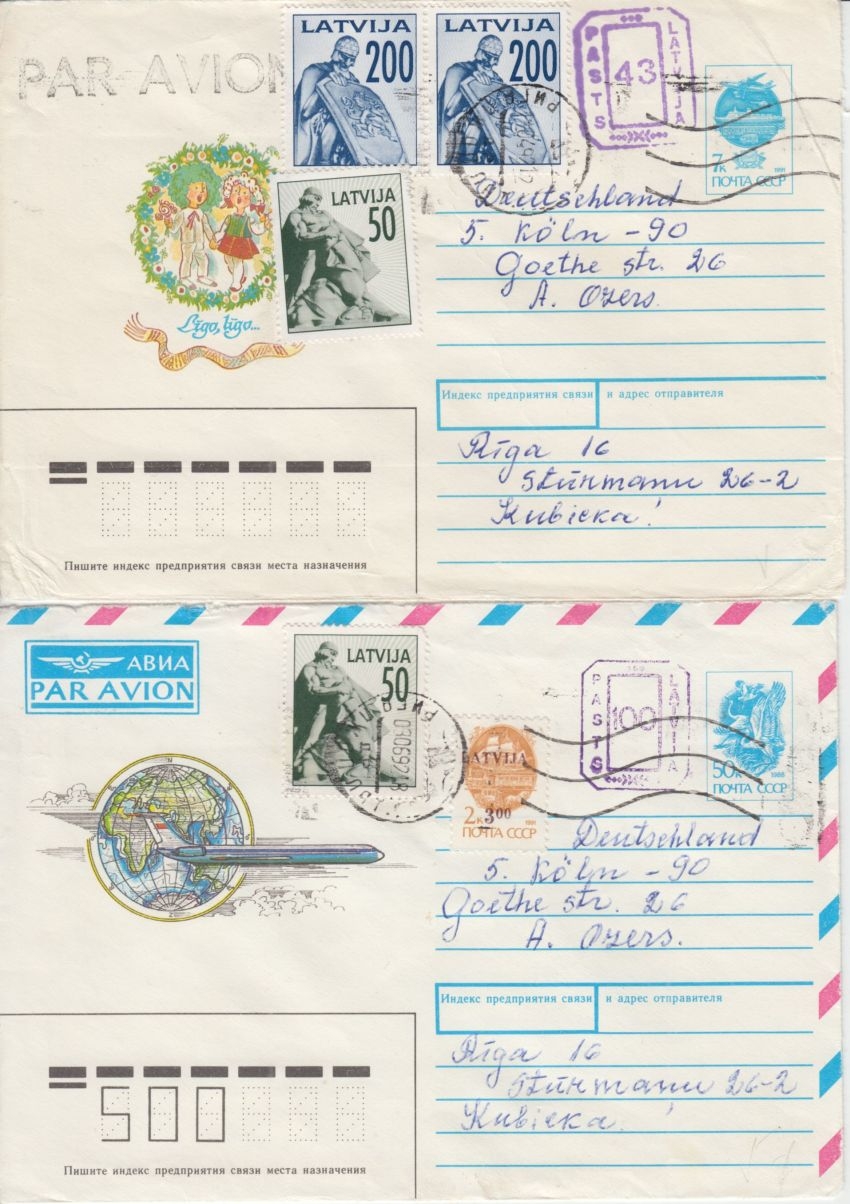 PAR AVION
LATVIJA
200
LATVIJA
200
PASTS
43
LATVIJA
7к
1991
ПОЧТА СССР
LATVIJA
50
Līgo, līgo...
Deutschland
5. Köln - 90
Goethe str. 26
A. Ozers.
Индекс предприятия связи и адрес отправителя
Rīga 16
Stūrmaņu 26-2
Kubicka!
Пишите индекс предприятия связи места назначения
АВИА
PAR AVION
LATVIJA
50
030692
LATVIJA
3.00
2к
1991
ПОЧТА СССР
PASTS
100
LATVIJA
50к
1988
ПОЧТА СССР
Deutschland
5. Köln - 90
Goethe str. 26
A. Ozers.
Индекс предприятия связи и адрес отправителя
Rīga 16
Stūrmaņu 26-2
Kubicka!
500
Пишите индекс предприятия связи места назначения